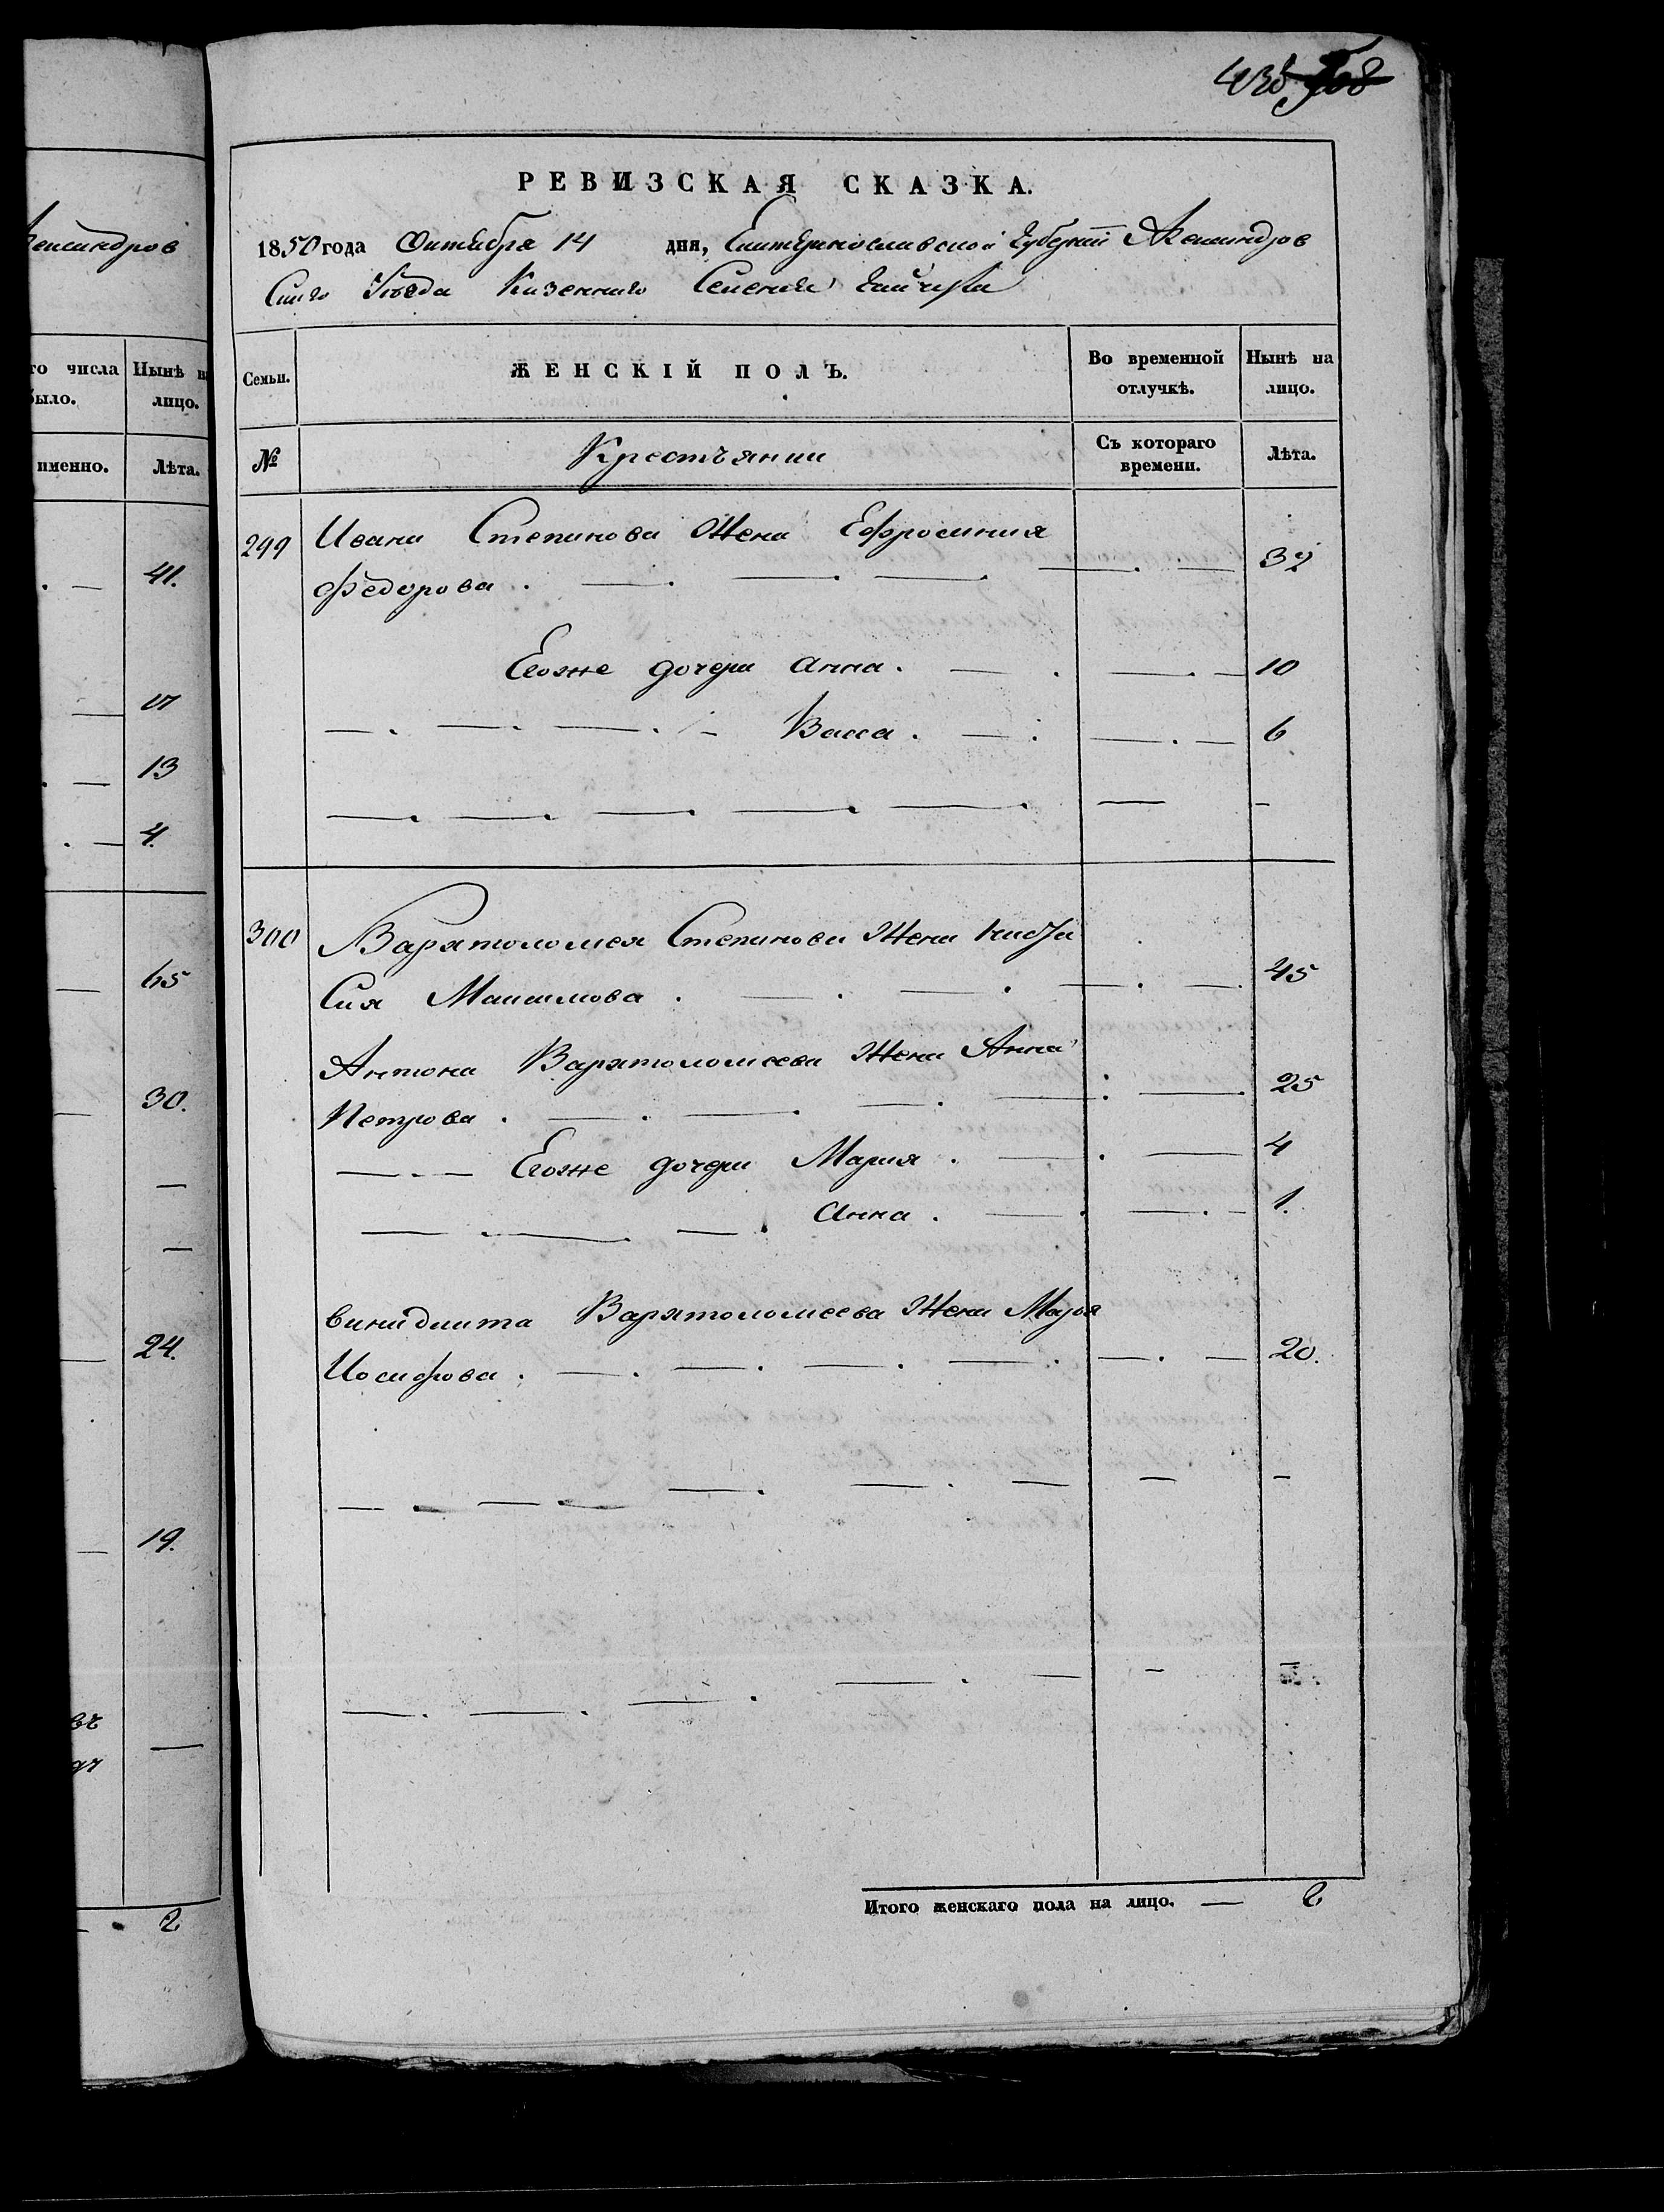 438 708
Александров
РЕВИЗСКАЯ СКАЗКА.
1850 года Октября 14 дня, Екатеринославской Губернии Александров
скаго Уезда Казеннаго Селения Гайчула
го числа Нынѣ на
было. лицо.
именно. Лѣта.
Семьи. ЖЕНСКІЙ ПОЛЪ. Во временной отлучкѣ. Нынѣ на лицо.
№ Крестьянии Съ котораго времени. Лѣта.
41.
17
13
4.
65
30.
24.
19.
2
299 Ивана Степанова Жена Ефросиния
Федорова. 32
Егоже дочери Анна. 10
Васса. 6
300 Варфоломея Степанова Жена Наста
сия Максимова. 45
Антона Варфоломеева Жена Анна
Петрова. 25
Егоже дочери Мария. 4
Анна. 1.
Варфоломеева Жена Марья
Иосифова. 20.
Итого женскаго пола на лицо. — 2